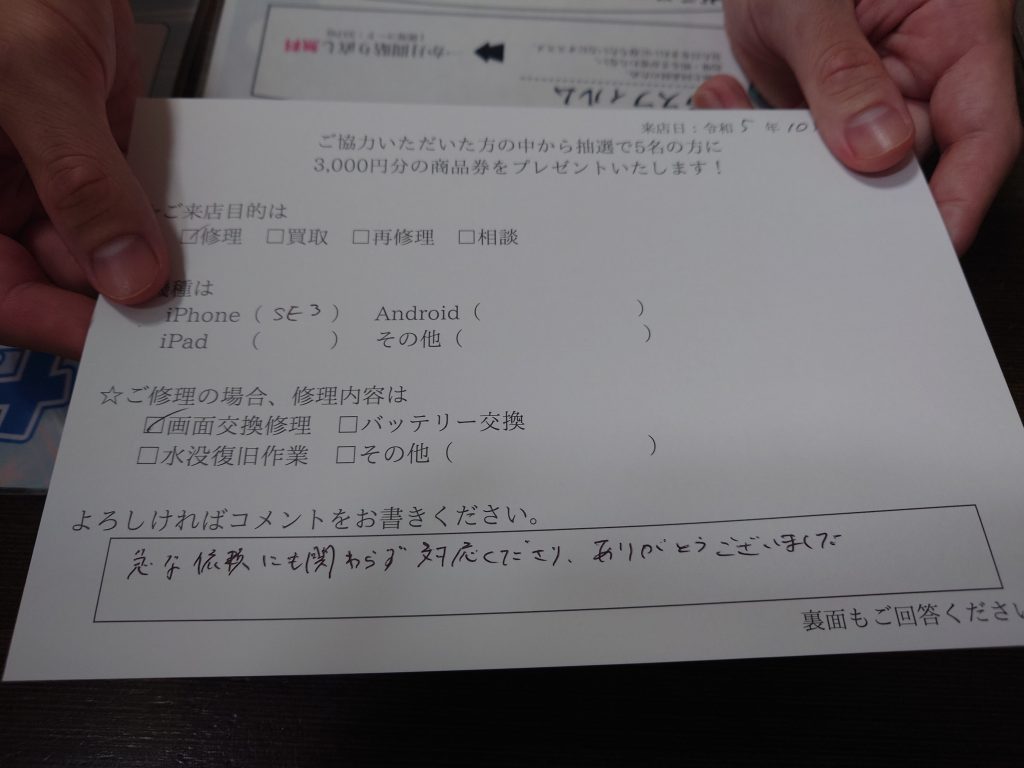 来店日：令和 5 年 10
ご協力いただいた方の中から抽選で5名の方に
3,000円分の商品券をプレゼントいたします！
ご来店目的は
☑修理 □買取 □再修理 □相談
機種は
iPhone（ SE3 ） Android（ ）
iPad （ ） その他（ ）
☆ご修理の場合、修理内容は
☑画面交換修理 □バッテリー交換
□水没復旧作業 □その他（ ）
よろしければコメントをお書きください。
急な依頼にも関わらず対応くださり、ありがとうございました
裏面もご回答ください
スフィルム
か月間貼り直し無料